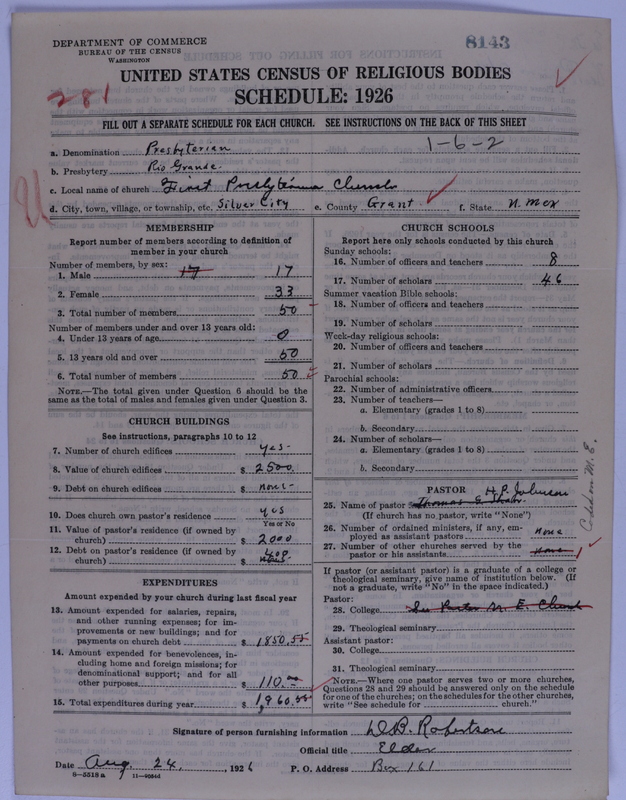 DEPARTMENT OF COMMERCE
BUREAU OF THE CENSUS
WASHINGTON
8143
UNITED STATES CENSUS OF RELIGIOUS BODIES
SCHEDULE: 1926
281
FILL OUT A SEPARATE SCHEDULE FOR EACH CHURCH. SEE INSTRUCTIONS ON THE BACK OF THIS SHEET
1-6-2
a. Denomination Presbyterian
b. Presbytery Rio Grande
c. Local name of church First Presbyterian Church
d. City, town, village, or township, etc. Silver City e. County Grant f. State N. Mex
MEMBERSHIP
Report number of members according to definition of
member in your church
Number of members, by sex:
1. Male 17 17
2. Female 33
3. Total number of members 50
Number of members under and over 13 years old:
4. Under 13 years of age 0
5. 13 years old and over 50
6. Total number of members 50
NOTE.—The total given under Question 6 should be the
same as the total of males and females given under Question 3.
CHURCH BUILDINGS
See instructions, paragraphs 10 to 12
7. Number of church edifices yes
8. Value of church edifices $ 2500.
9. Debt on church edifices $ none
10. Does church own pastor's residence yes
Yes or No
11. Value of pastor's residence (if owned by
church) $ 2000
12. Debt on pastor's residence (if owned by
church) $ 400
EXPENDITURES
Amount expended by your church during last fiscal year
13. Amount expended for salaries, repairs,
and other running expenses; for im-
provements or new buildings; and for
payments on church debt $ 1850.55
14. Amount expended for benevolences, in-
cluding home and foreign missions; for
denominational support; and for all
other purposes $ 110.00
15. Total expenditures during year $ 1,960.55
CHURCH SCHOOLS
Report here only schools conducted by this church
Sunday schools:
16. Number of officers and teachers 8
17. Number of scholars 46
Summer vacation Bible schools:
18. Number of officers and teachers
19. Number of scholars
Week-day religious schools:
20. Number of officers and teachers
21. Number of scholars
Parochial schools:
22. Number of administrative officers
23. Number of teachers—
a. Elementary (grades 1 to 8)
b. Secondary
24. Number of scholars—
a. Elementary (grades 1 to 8)
b. Secondary
PASTOR
H. P. Johnson
25. Name of pastor Thomas
(If church has no pastor, write "None")
26. Number of ordained ministers, if any, em-
ployed as assistant pastors none
27. Number of other churches served by the
pastor or his assistants none 1
If pastor (or assistant pastor) is a graduate of a college or
theological seminary, give name of institution below. (If
not a graduate, write "No" in the space indicated.)
Pastor:
28. College See Pastor M. E. Church
29. Theological seminary
Assistant pastor:
30. College
31. Theological seminary
NOTE.—Where one pastor serves two or more churches,
Questions 28 and 29 should be answered only on the schedule
for one of the churches; on the schedules for the other churches,
write "See schedule for church."
Signature of person furnishing information W. B. Robertson
Official title Elder
Date Aug. 24, 1926 P. O. Address Box 161
8-5518 a